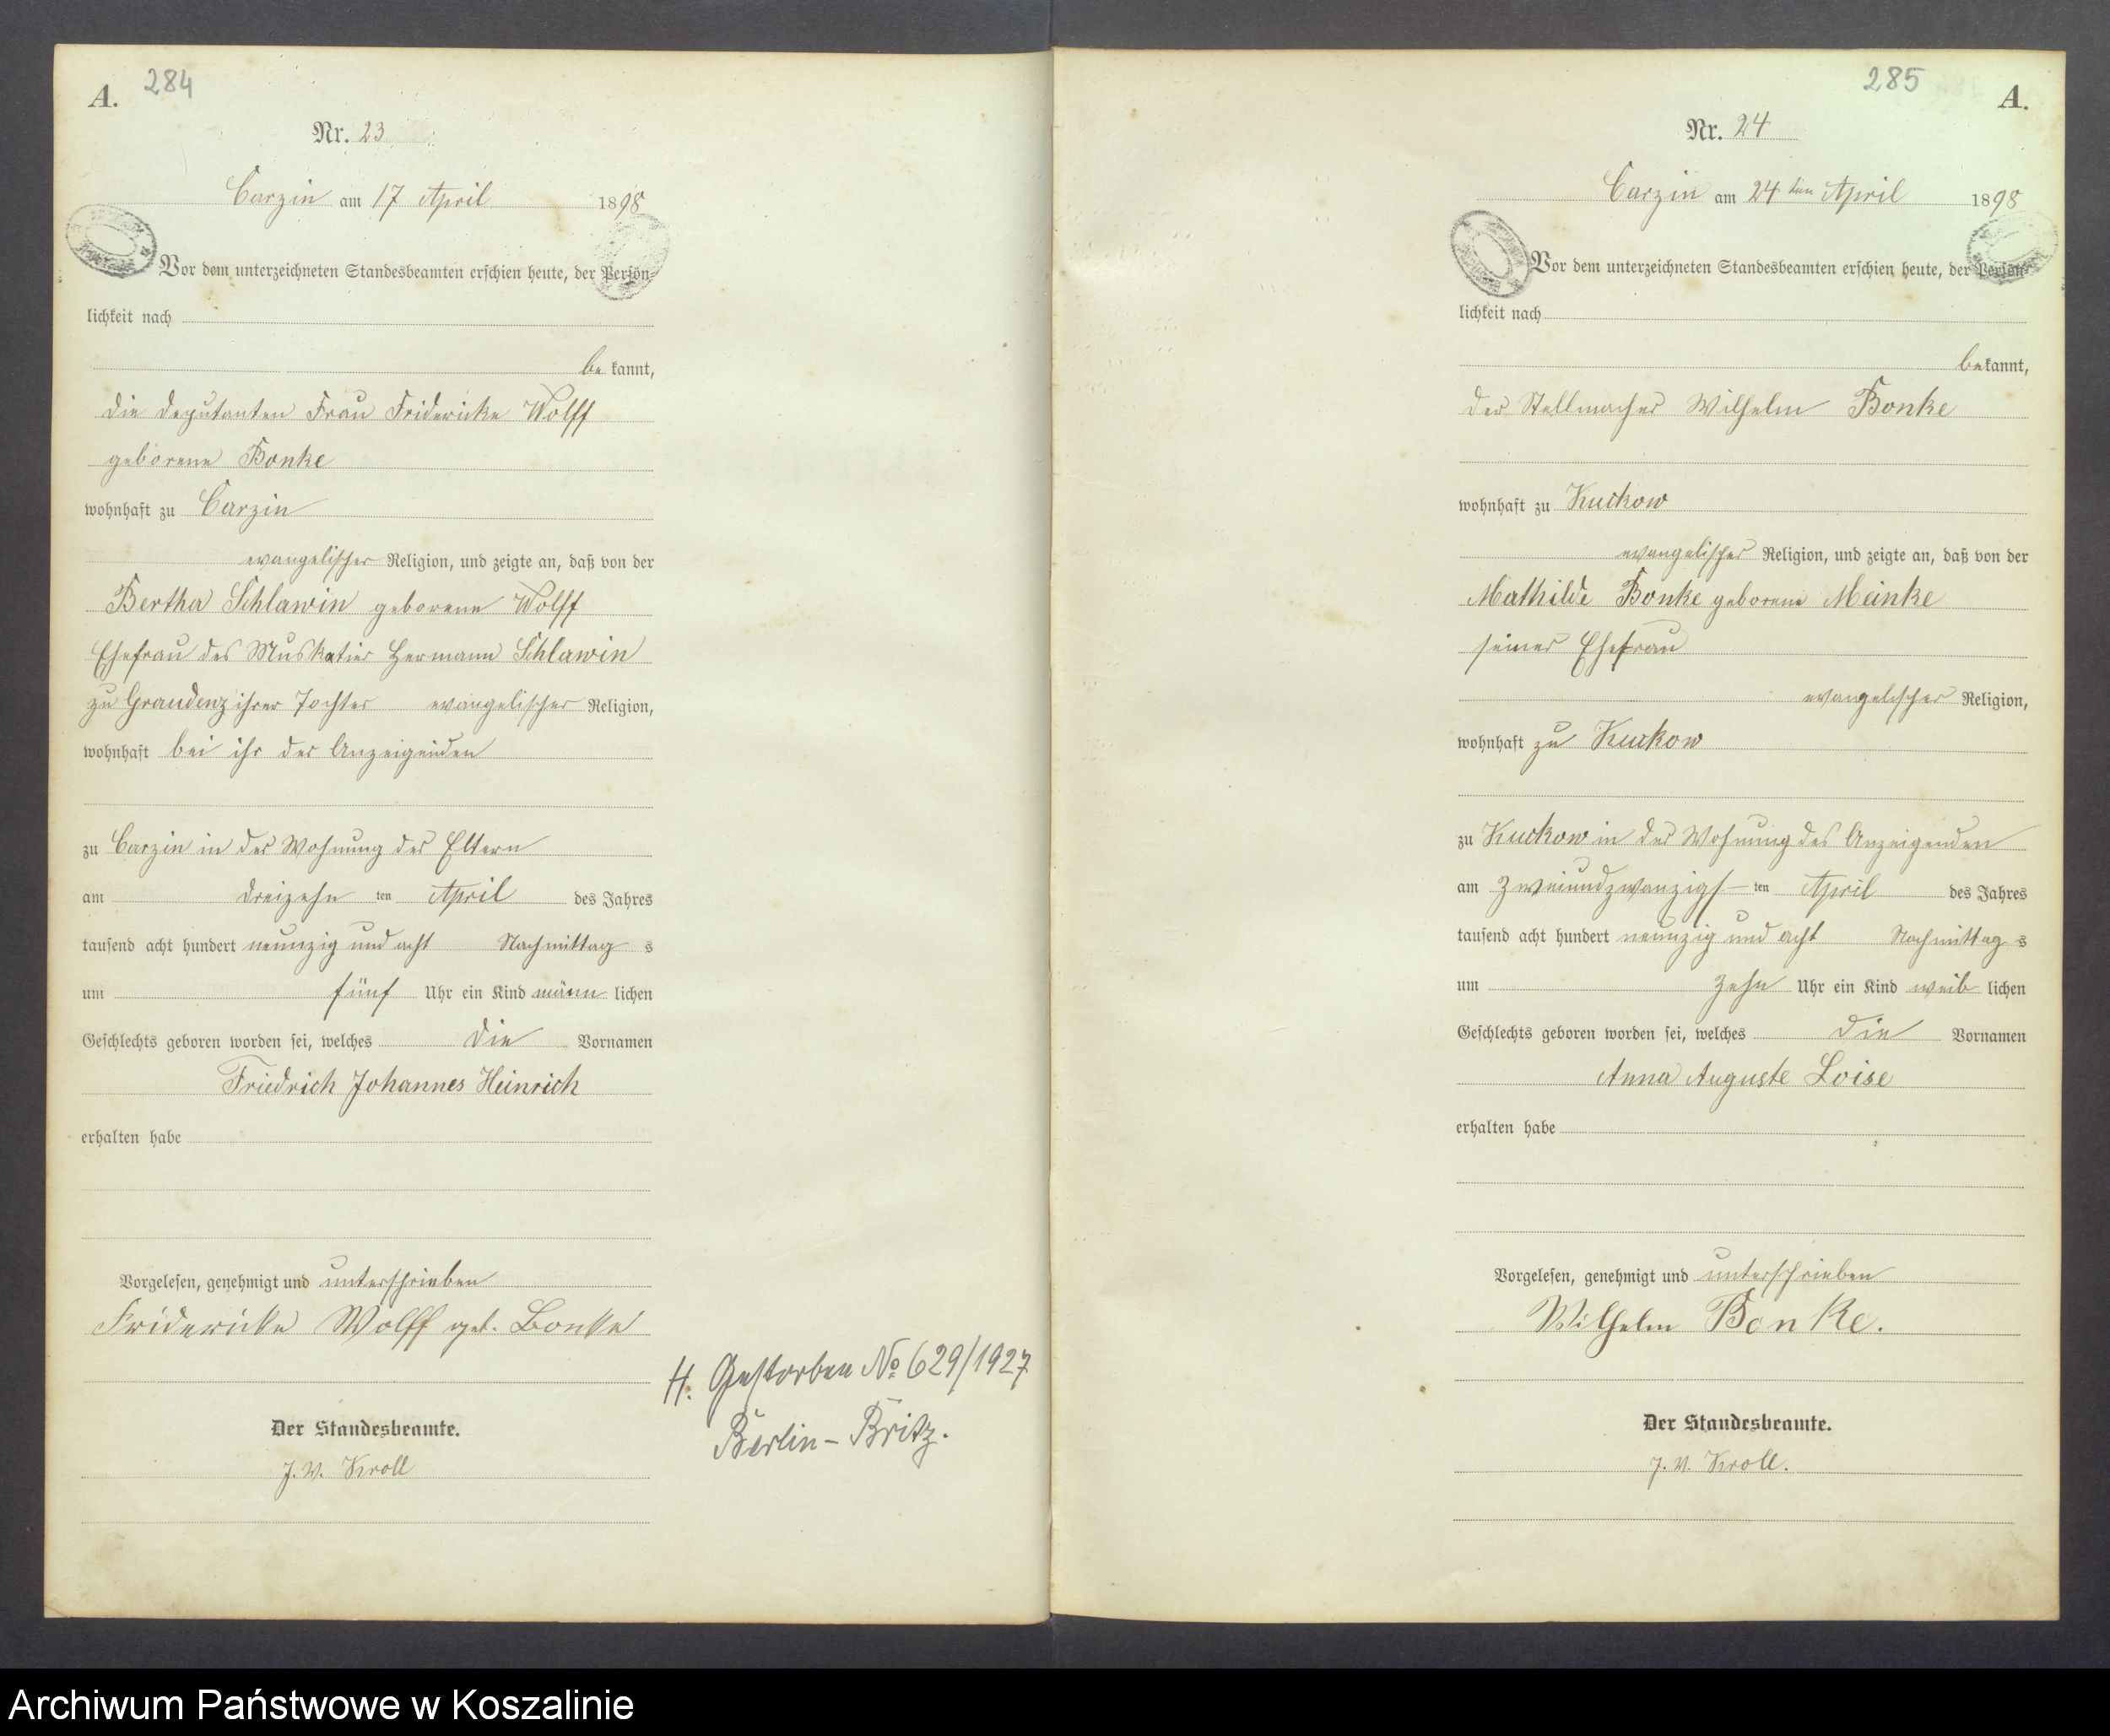 A. 284
Nr. 23
Carzin am 17 April 1898
Vor dem unterzeichneten Standesbeamten erschien heute, der Persön-
lichkeit nach
be kannt,
die Deputanten Frau Fridericke Wolff
geborene Bonke
wohnhaft zu Carzin
evangelischer Religion, und zeigte an, daß von der
Bertha Schlawin geborene Wolff
Ehefrau des Musketier Hermann Schlawin
zu Graudenz ihrer Tochter evangelischer Religion,
wohnhaft bei ihr der Anzeigenden
zu Carzin in der Wohnung der Eltern
am dreizehn ten April des Jahres
tausend acht hundert neunzig und acht Nachmittag s
um fünf Uhr ein Kind männ lichen
Geschlechts geboren worden sei, welches die Vornamen
Friedrich Johannes Heinrich
erhalten habe
Vorgelesen, genehmigt und unterschrieben
Fridericke Wolff geb. Bonke
Der Standesbeamte.
J. V. Kroll
H. Gestorben No. 629/1927
Berlin-Britz.
285 A.
Nr. 24
Carzin am 24 ten April 1898
Vor dem unterzeichneten Standesbeamten erschien heute, der Persön-
lichkeit nach
bekannt,
der Stellmacher Wilhelm Bonke
wohnhaft zu Kuckow
evangelischer Religion, und zeigte an, daß von der
Mathilde Bonke geborene Meinke
seiner Ehefrau
evangelischer Religion,
wohnhaft zu Kuckow
zu Kuckow in der Wohnung des Anzeigenden
am zweiundzwanzigs- ten April des Jahres
tausend acht hundert neunzig und acht Nachmittag s
um zehn Uhr ein Kind weib lichen
Geschlechts geboren worden sei, welches die Vornamen
Anna Auguste Loise
erhalten habe
Vorgelesen, genehmigt und unterschrieben
Wilhelm Bonke.
Der Standesbeamte.
J. V. Kroll.
Archiwum Państwowe w Koszalinie